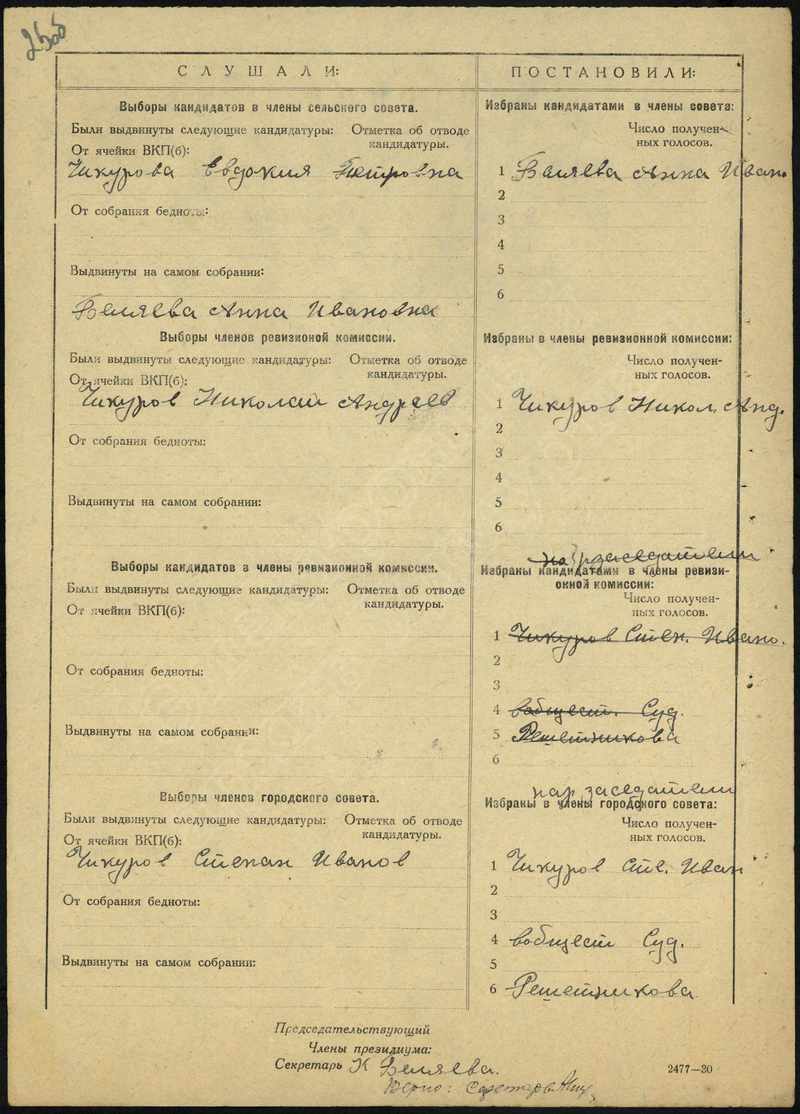 СЛУШАЛИ:
Выборы кандидатов в члены сельского совета.
Были выдвинуты следующие кандидатуры: Отметка об отводе кандидатуры.
От ячейки ВКП(б):
Чикурова Евдокия Петровна
От собрания бедноты:
Выдвинуты на самом собрании:
Беляева Анна Ивановна
Выборы членов ревизионой комиссии.
Были выдвинуты следующие кандидатуры: Отметка об отводе кандидатуры.
От ячейки ВКП(б):
Чикуров Николай Андреев
От собрания бедноты:
Выдвинуты на самом собрании:
Выборы кандидатов в члены ревизионной комиссии.
Были выдвинуты следующие кандидатуры: Отметка об отводе кандидатуры.
От ячейки ВКП(б):
От собрания бедноты:
Выдвинуты на самом собрании:
Выборы членов городского совета.
Были выдвинуты следующие кандидатуры: Отметка об отводе кандидатуры.
От ячейки ВКП(б):
Чикуров Степан Иванов
От собрания бедноты:
Выдвинуты на самом собрании:
ПОСТАНОВИЛИ:
Избраны кандидатами в члены совета:
Число получен-
ных голосов.
1 Беляева Анна Ивано
2
3
4
5
6
Избраны в члены ревизионной комиссии:
Число получен-
ных голосов.
1 Чикуров Никол. Анд.
2
3
4
5
6
нар заседатели
Избраны кандидатами в члены ревизи-
онной комиссии:
Число получен-
ных голосов.
1 Чикуров Степ. Ивано.
2
3
4 вобщест. Суд.
5 Решетникова
6
нар заседатели
Избраны в члены городского совета:
Число получен-
ных голосов.
1 Чикуров Сте. Иван
2
3
4 вобщест Суд.
5
6 Решетникова
Председательствующий
Члены президиума:
Секретарь К Беляева.
Верно:
2477—30